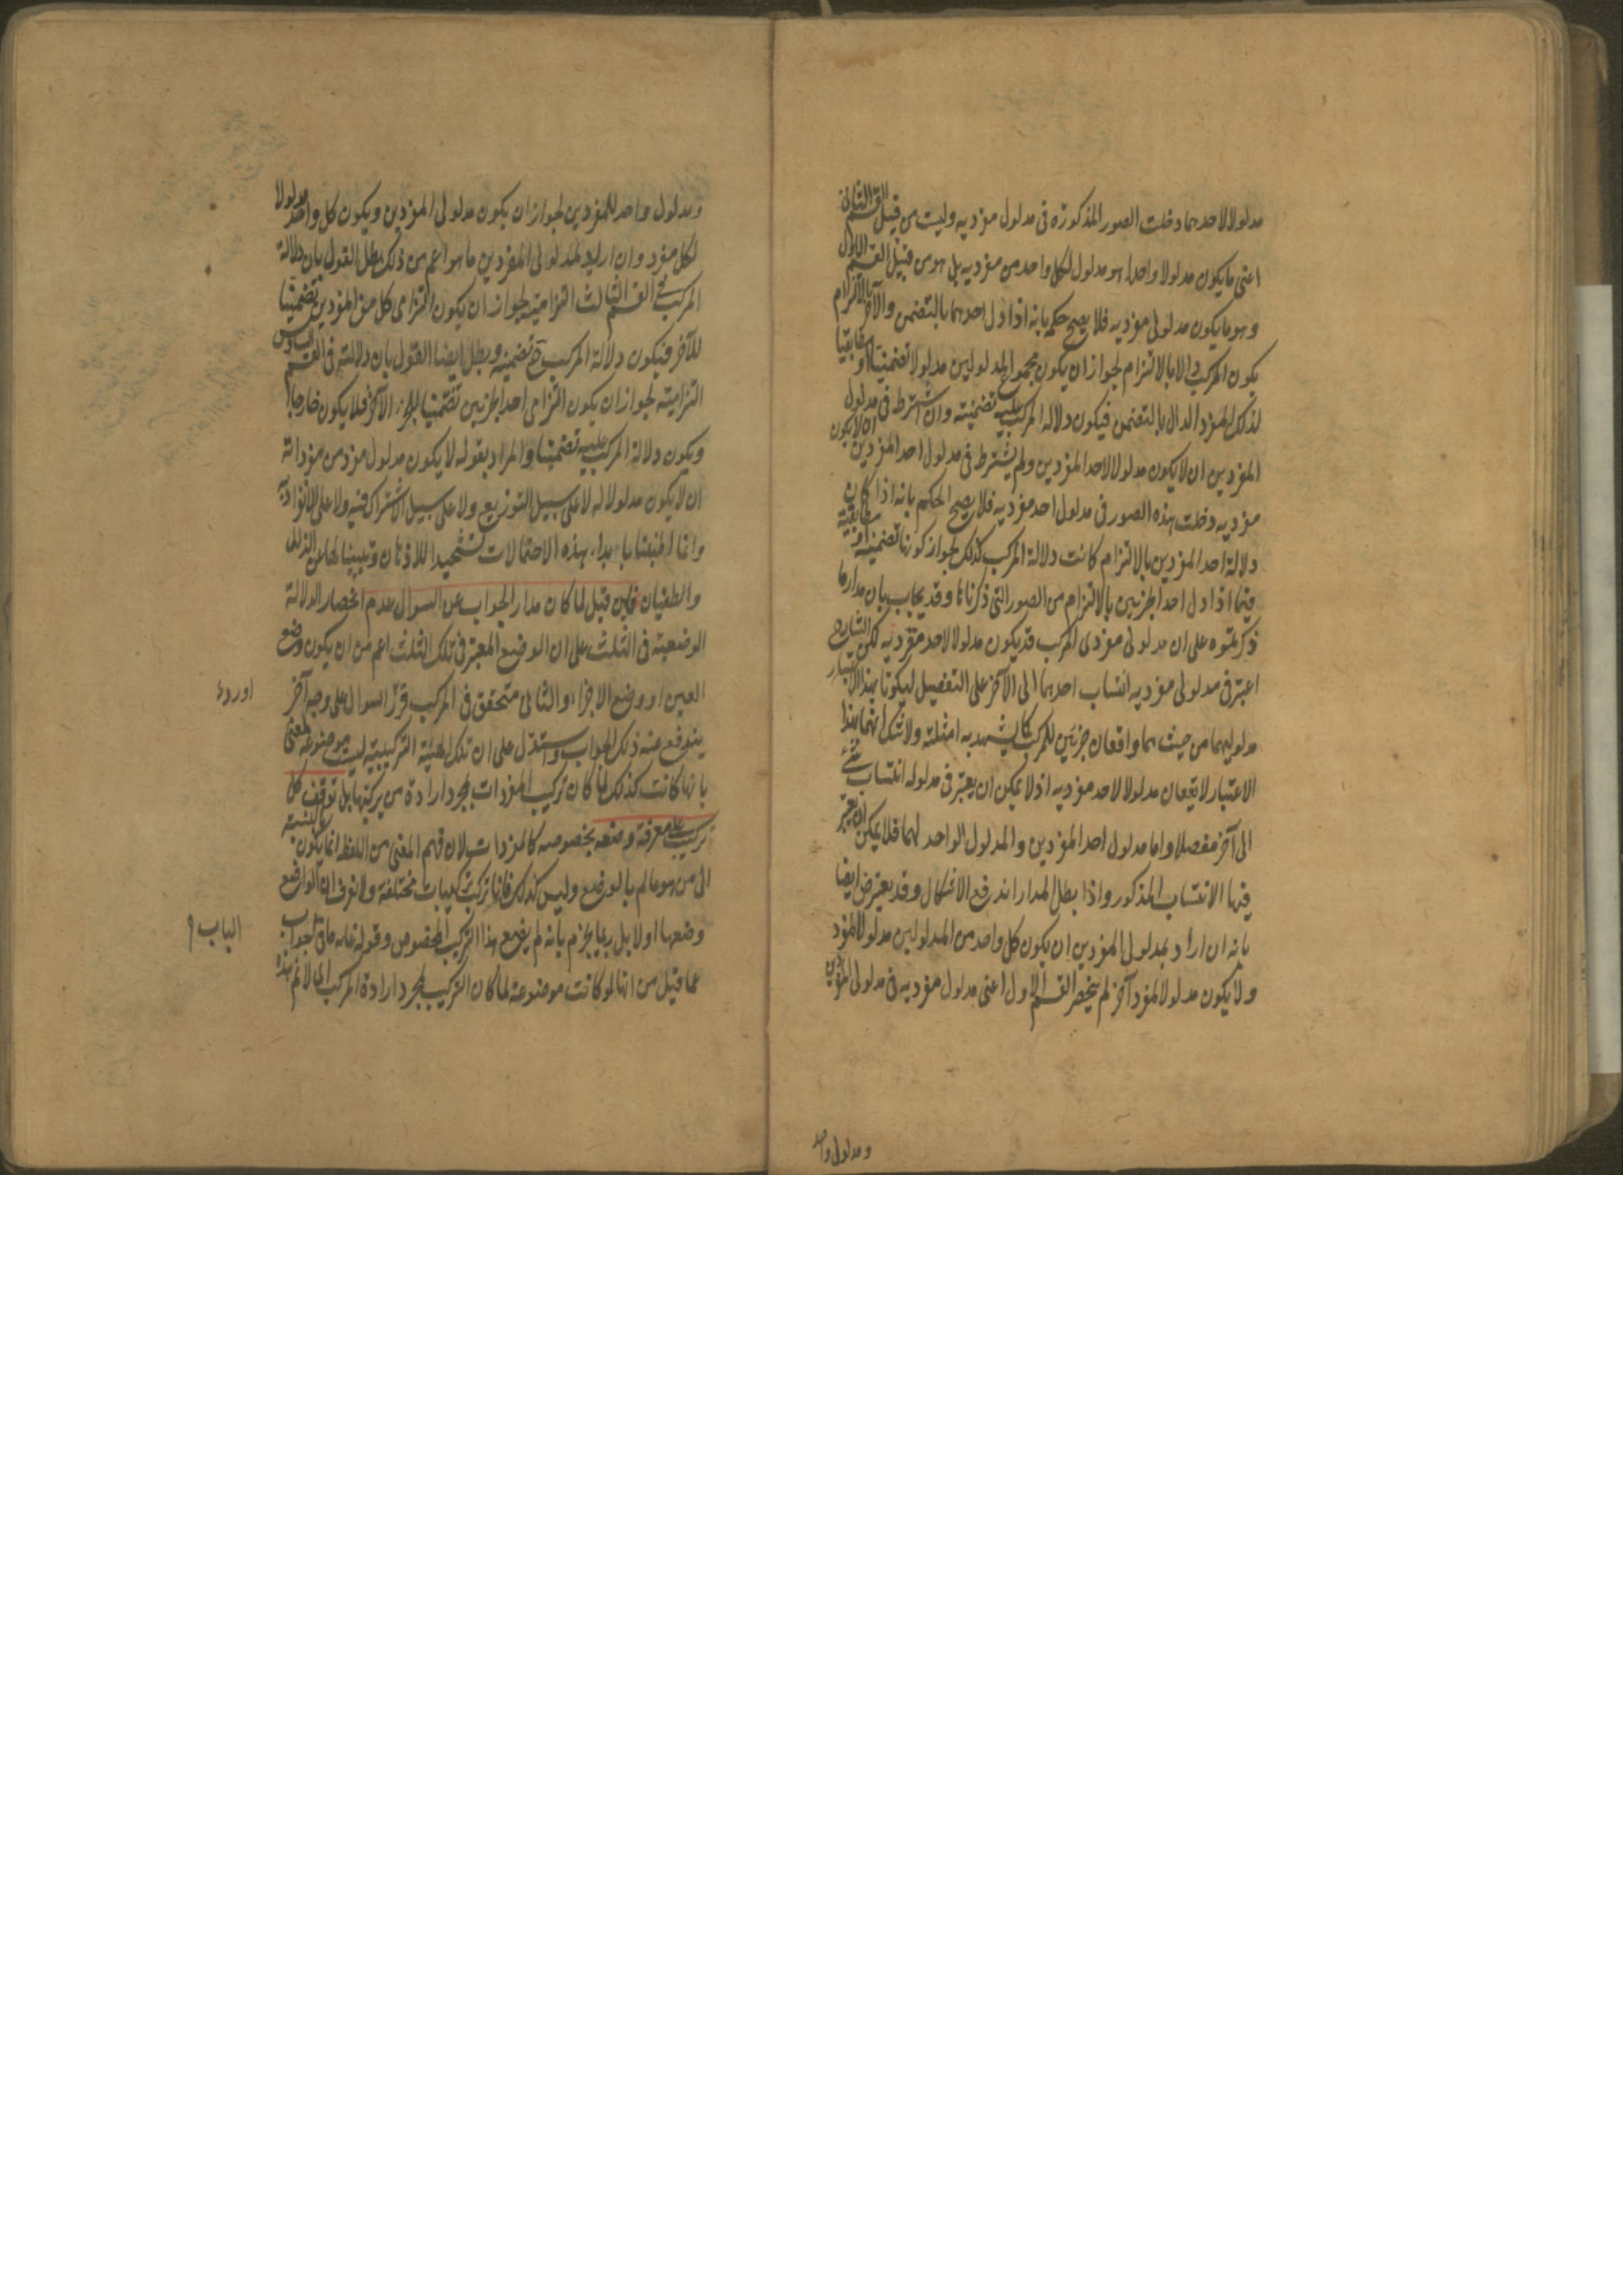 مدلولا لاحدهما دخلت الصور المذكورة فى مدلول مفرديه وليست من قبيل القسم الثانى
اعنى ما يكون مدلولا واحدا هو مدلول لكل واحد من مفرديه بل هو من قبيل القسم الاول
وهو ما يكون مدلولى مفرديه فلا يصح حكمه بانه اذا دل احدهما بالتضمن والآخر بالالتزام
يكون المركب دالا بالالتزام لجواز ان يكون مجموع المدلولين مدلولا تضمنيا او مطابقيا
لذلك المفرد الدال بالتضمن فيكون دلالة المركب عليه تضمنية وان اشترط فى مدلول
المفردين ان لا يكون مدلولا لاحد المفردين ولم يشترط فى مدلول احد المفردين ان لا يكون
مفرديه دخلت هذه الصور فى مدلول احد مفرديه فلا يصح الحكم بانه اذا كان
دلالة احد المفردين بالالتزام كانت دلالة المركب كذلك لجواز كونها تضمنية او مطابقية
فيما اذا دل احد الجزئين بالالتزام من الصور التى ذكرناها وقد يجاب بان مدار ما
ذكرتموه على ان مدلولى مفردى المركب قد يكون مدلولا لاحد مفرديه لكن الشارح
اعتبر فى مدلولى مفرديه انتساب احدهما الى الآخر على التفصيل ليكونا بهذا الاعتبار
مدلوليهما من حيث هما واقعان جزئين للمركب كما يشهد به امثلته ولا شك انهما بهذا
الاعتبار لا يقعان مدلولا لاحد مفرديه اذ لا يمكن ان يعتبر فى مدلوله انتساب شئ
الى آخر مفصلا واما مدلول احد المفردين والمدلول الواحد لهما فلا يمكن ان يعتبر
فيها الانتساب المذكور واذا بطل المدار اندفع الاشكال وقد يعترض ايضا
بانه ان اراد بمدلولى المفردين ان يكون كل واحد من المدلولين مدلولا لمفرد
ولا يكون مدلولا لمفرد آخر لم ينحصر القسم الاول اعنى مدلول مفرديه فى مدلولى المفردين
ومدلول واحد
ومدلول واحد للمفردين لجواز ان يكون مدلولى المفردين ويكون كل واحد مدلولا
لكل مفرد وان اريد بمدلولى المفردين ما هو اعم من ذلك بطل القول بان دلالة
المركب فى القسم الثالث التزامية لجواز ان يكون التزامى كل من المفردين تضمنيا
للآخر فيكون دلالة المركب ح تضمنية وبطل ايضا القول بان دلالته فى القسم السادس
التزامية لجواز ان يكون التزامى احد الجزئين تضمنيا للجزء الآخر فلا يكون خارجا
ويكون دلالة المركب عليه تضمنيا والمراد بقوله لا يكون مدلول مفرد من مفرداته
ان لا يكون مدلولا له لا على سبيل التوزيع ولا على سبيل الاشتراك فيه ولا على الانفراد به
وانما اطنبنا بابداء هذه الاحتمالات تشحيذا للاذهان وتبيينا لها عن الزلل
والطغيان فان قيل لما كان مدار الجواب عن السوال عدم انحصار الدلالة
الوضعية فى الثلث على ان الوضع المعتبر فى تلك الثلث اعم من ان يكون وضع
العين او وضع الاجزاء والثانى متحقق فى المركب قرر السوال على وجه آخر
يندفع عنه ذلك الجواب واستدل على ان تلك الهيئة التركيبية ليست موضوعة لمعنى
بانها كانت كذلك لما كان تركيب المفردات بمجرد ارادة من يركبها بل توقف كل
تركيب على معرفة وضعه بخصوصه كالمفردات لان فهم المعنى من اللفظ انما يكون بالنسبة
الى من هو عالم بالوضع وليس كذلك فانا نركب تركيبات مختلفة ولا نعرف ان الواضع
وضعها اولا بل ربما يجزم بانه لم يضع هذا التركيب المخصوص وقوله فانه ما فى الجواب
عما قيل من انها لو كانت موضوعة لما كان التركيب بمجرد ارادة المركب انا لا نم هذه
اورد
الباب